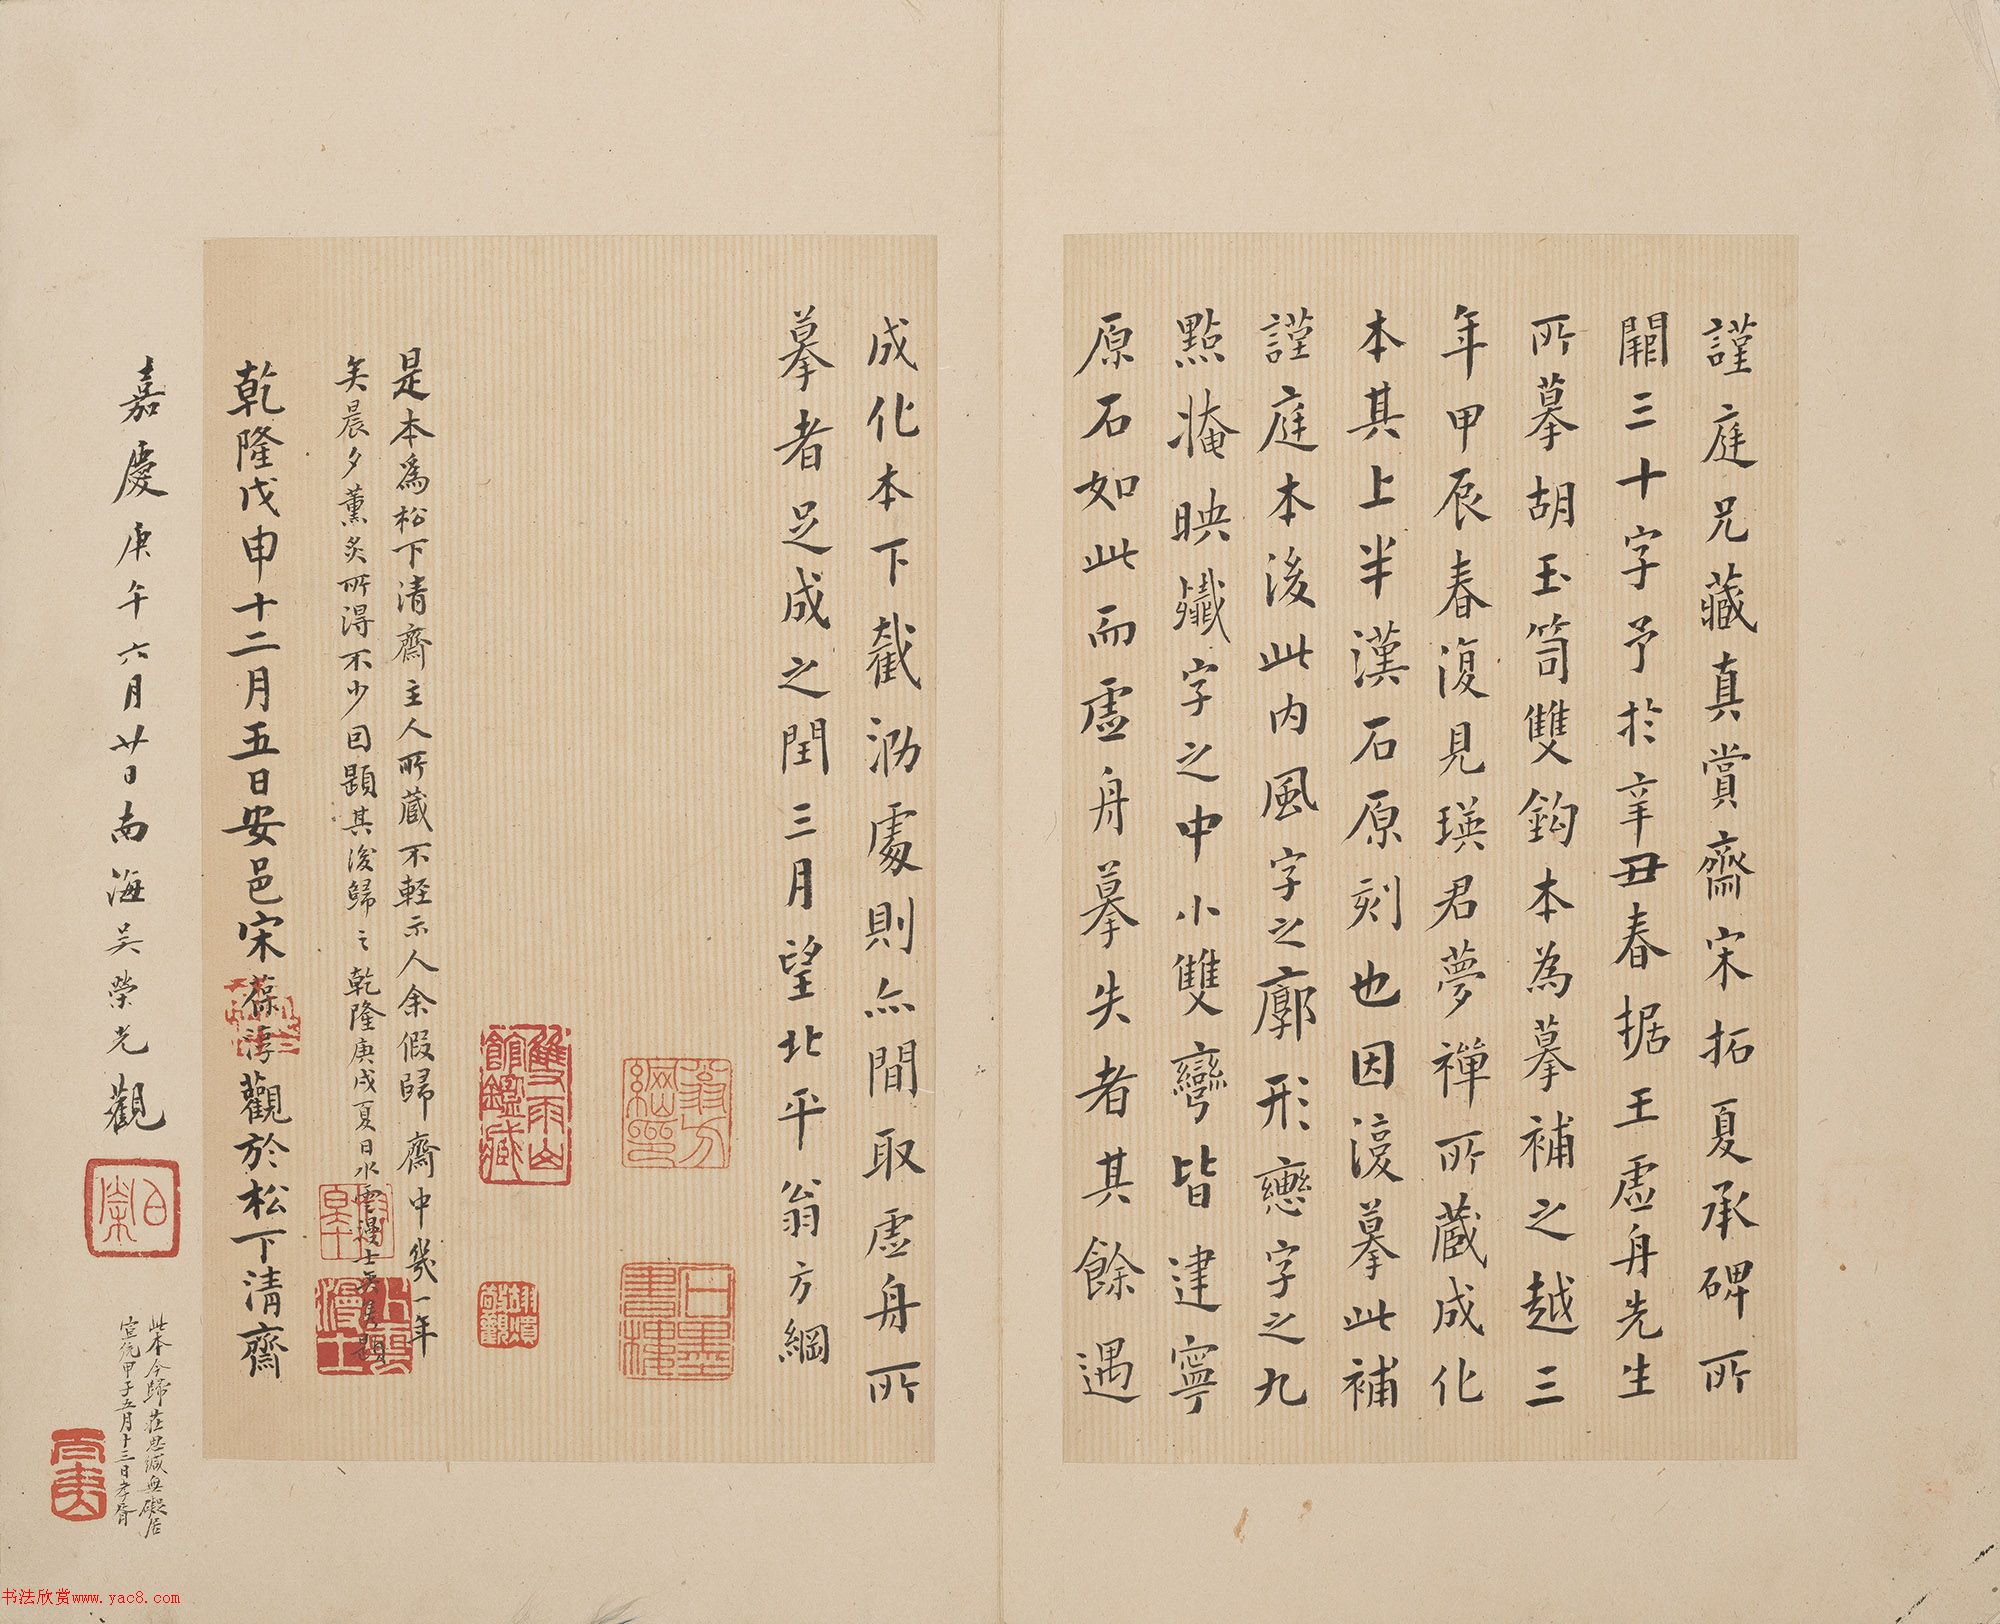 謹庭兄藏真賞齋宋拓夏承碑所
闕三十字予於辛丑春据王虛舟先生
所摹胡玉笥雙鈎本為摹補之越三
年甲辰春復見瑛君夢禪所藏成化
本其上半漢石原刻也因湲摹此補
謹庭本後此內風字之廓形戀字之九
點淹映孅字之中小雙彎皆建寧
原石如此而虛舟摹失者其餘遇
成化本下截泐處則亦間取虛舟所
摹者足成之閏三月望北平翁方綱
是本為松下清齋主人所藏不輕示人余假歸齋中幾一年
矣晨夕薰炙所得不少因題其後歸之乾隆庚戌夏日水雲漫士題
乾隆戊申十二月五日安邑宋葆淳觀於松下清齋
嘉慶庚午六月廿日南海吳榮光觀
此本今歸莊思緘無礙居
宣統甲子五月十三日孝胥
雙雨山館鑑藏
翁方綱印
石墨書樓
水雲漫士
伯榮
书法欣赏www.yac8.com